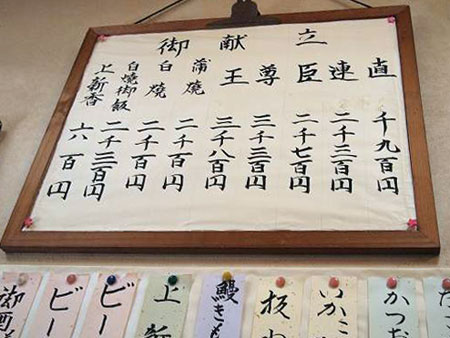 御献立
直 千九百円
連 二千三百円
臣 二千七百円
尊 三千三百円
王 三千八百円
蒲焼 二千百円
白焼 二千百円
白焼御飯 二千三百円
上新香 六百円
かつお
いかこ
板わ
鰻きも
上新
ビー
ビー
御酒